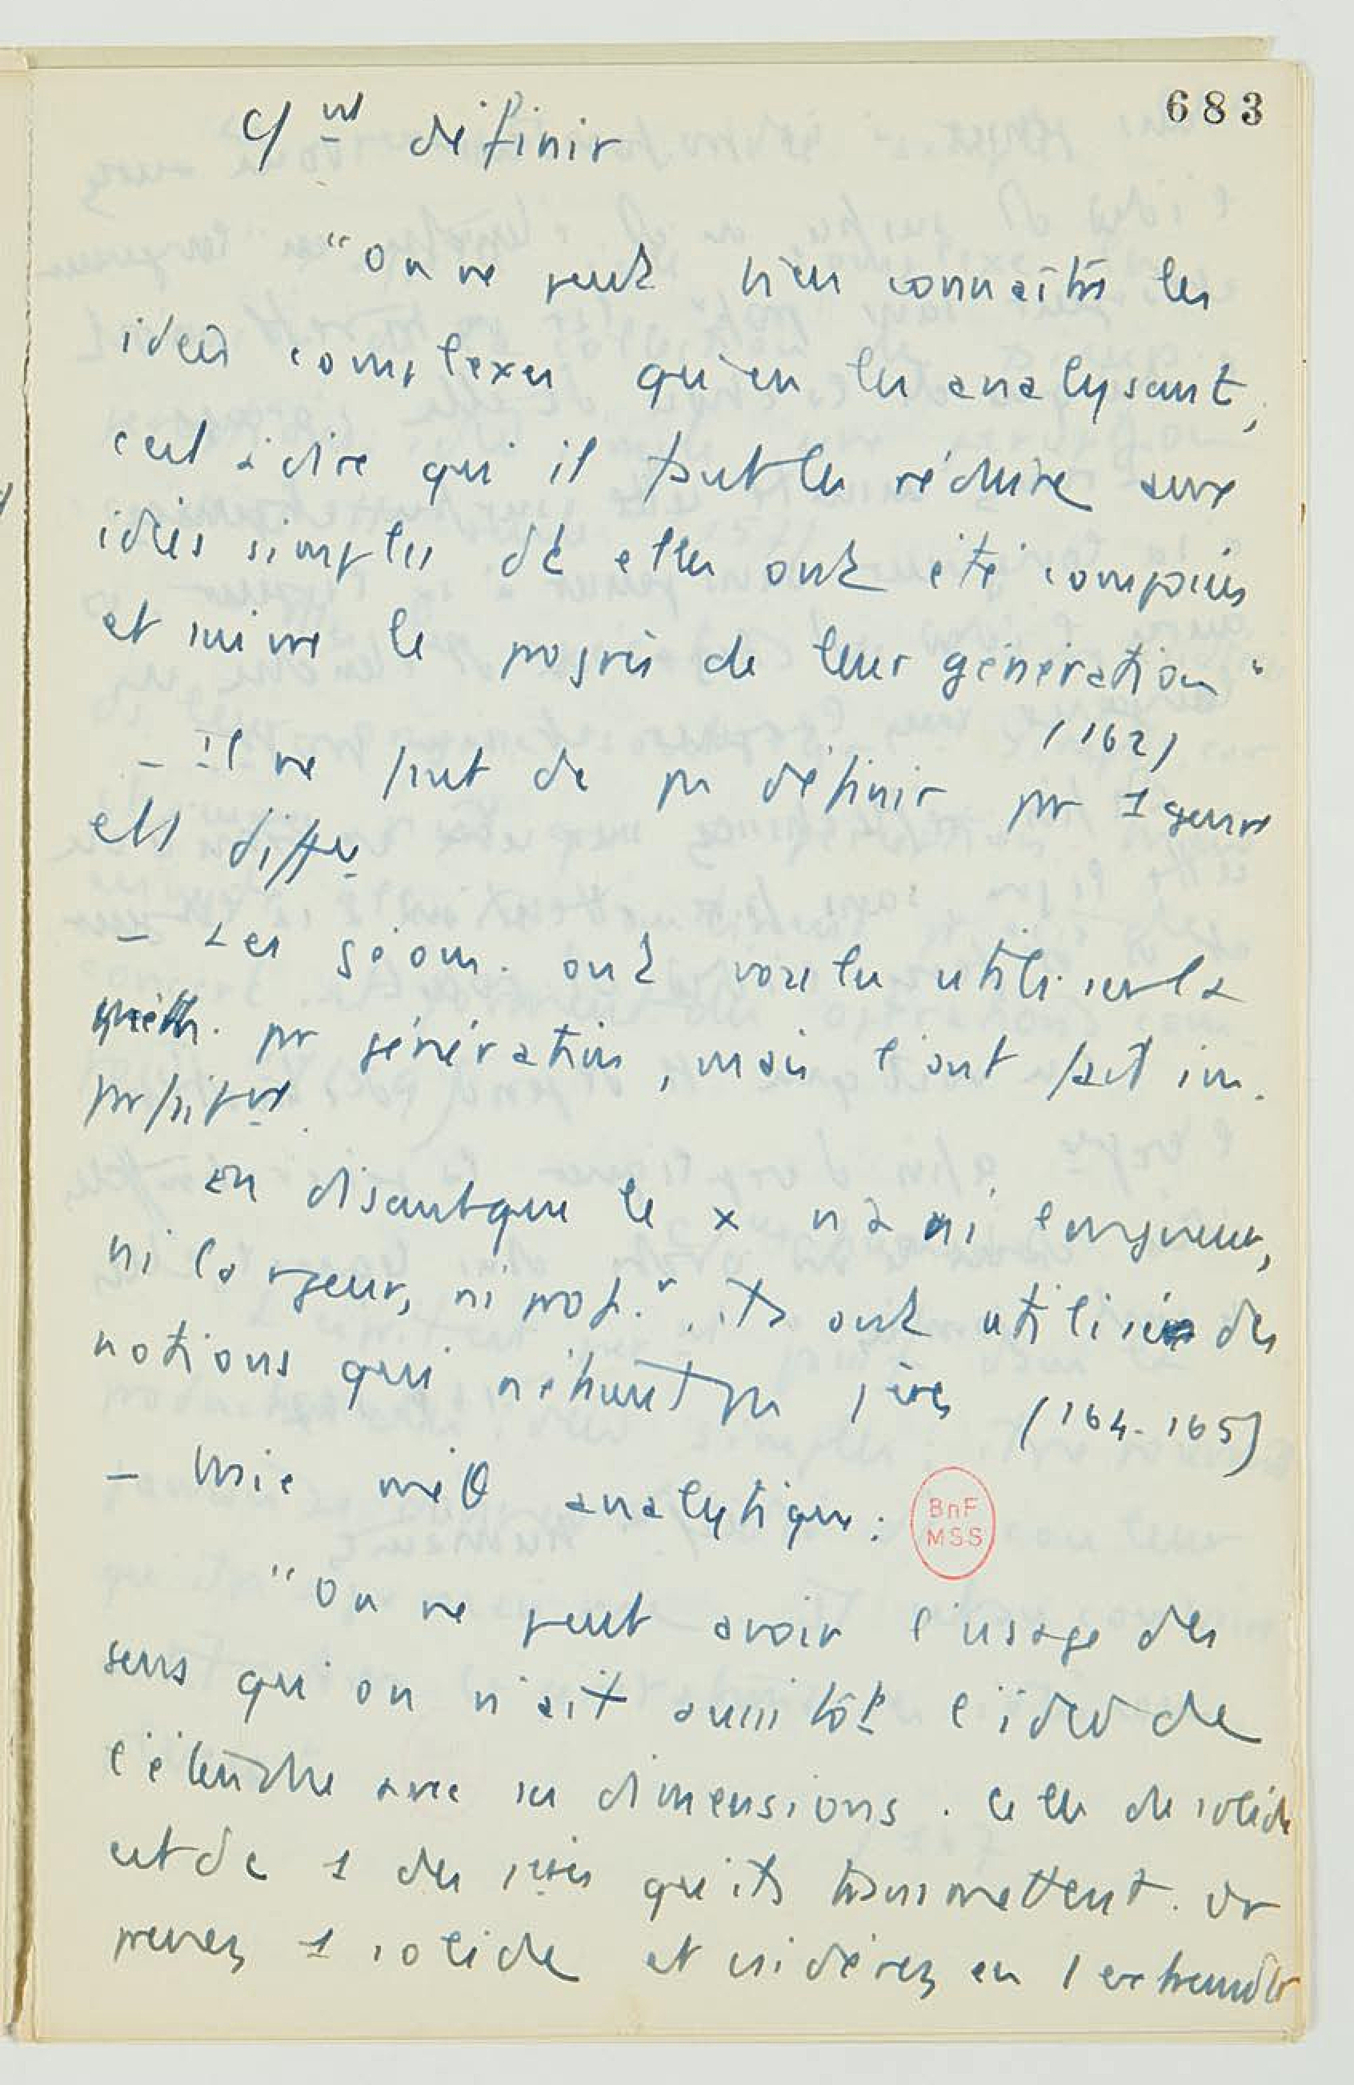 683
c/ nt définir
"On ne peut bien connaître les
idées complexes qu'en les analysant,
c'est à dire qu'il faut les réduire aux
idées simples dt elles ont été composées
et suivre le progrès de leur génération"
(162)
- il ne faut dc pas définir pr 1 genre
et diffce
- Les géom. ont voulu utiliser la
méth. pr génération, mais l'ont fait im-
prfaitnt.
En disant que le x n'a ni longueur,
ni largeur, ni prof.r, ils ont utilisé des
notions qui n'étaient pas 1ères (164-165)
- Vraie méθ analytique :
BnF
MSS
"On ne peut avoir l'usage des
sens qu'on n'ait aussitôt l'idée de
l'étendue avec ses dimensions. Celle de solide
est dc 1 des 1ères qu'ils transmettent. Or
prenez 1 solide et csidérez en 1 extrémité